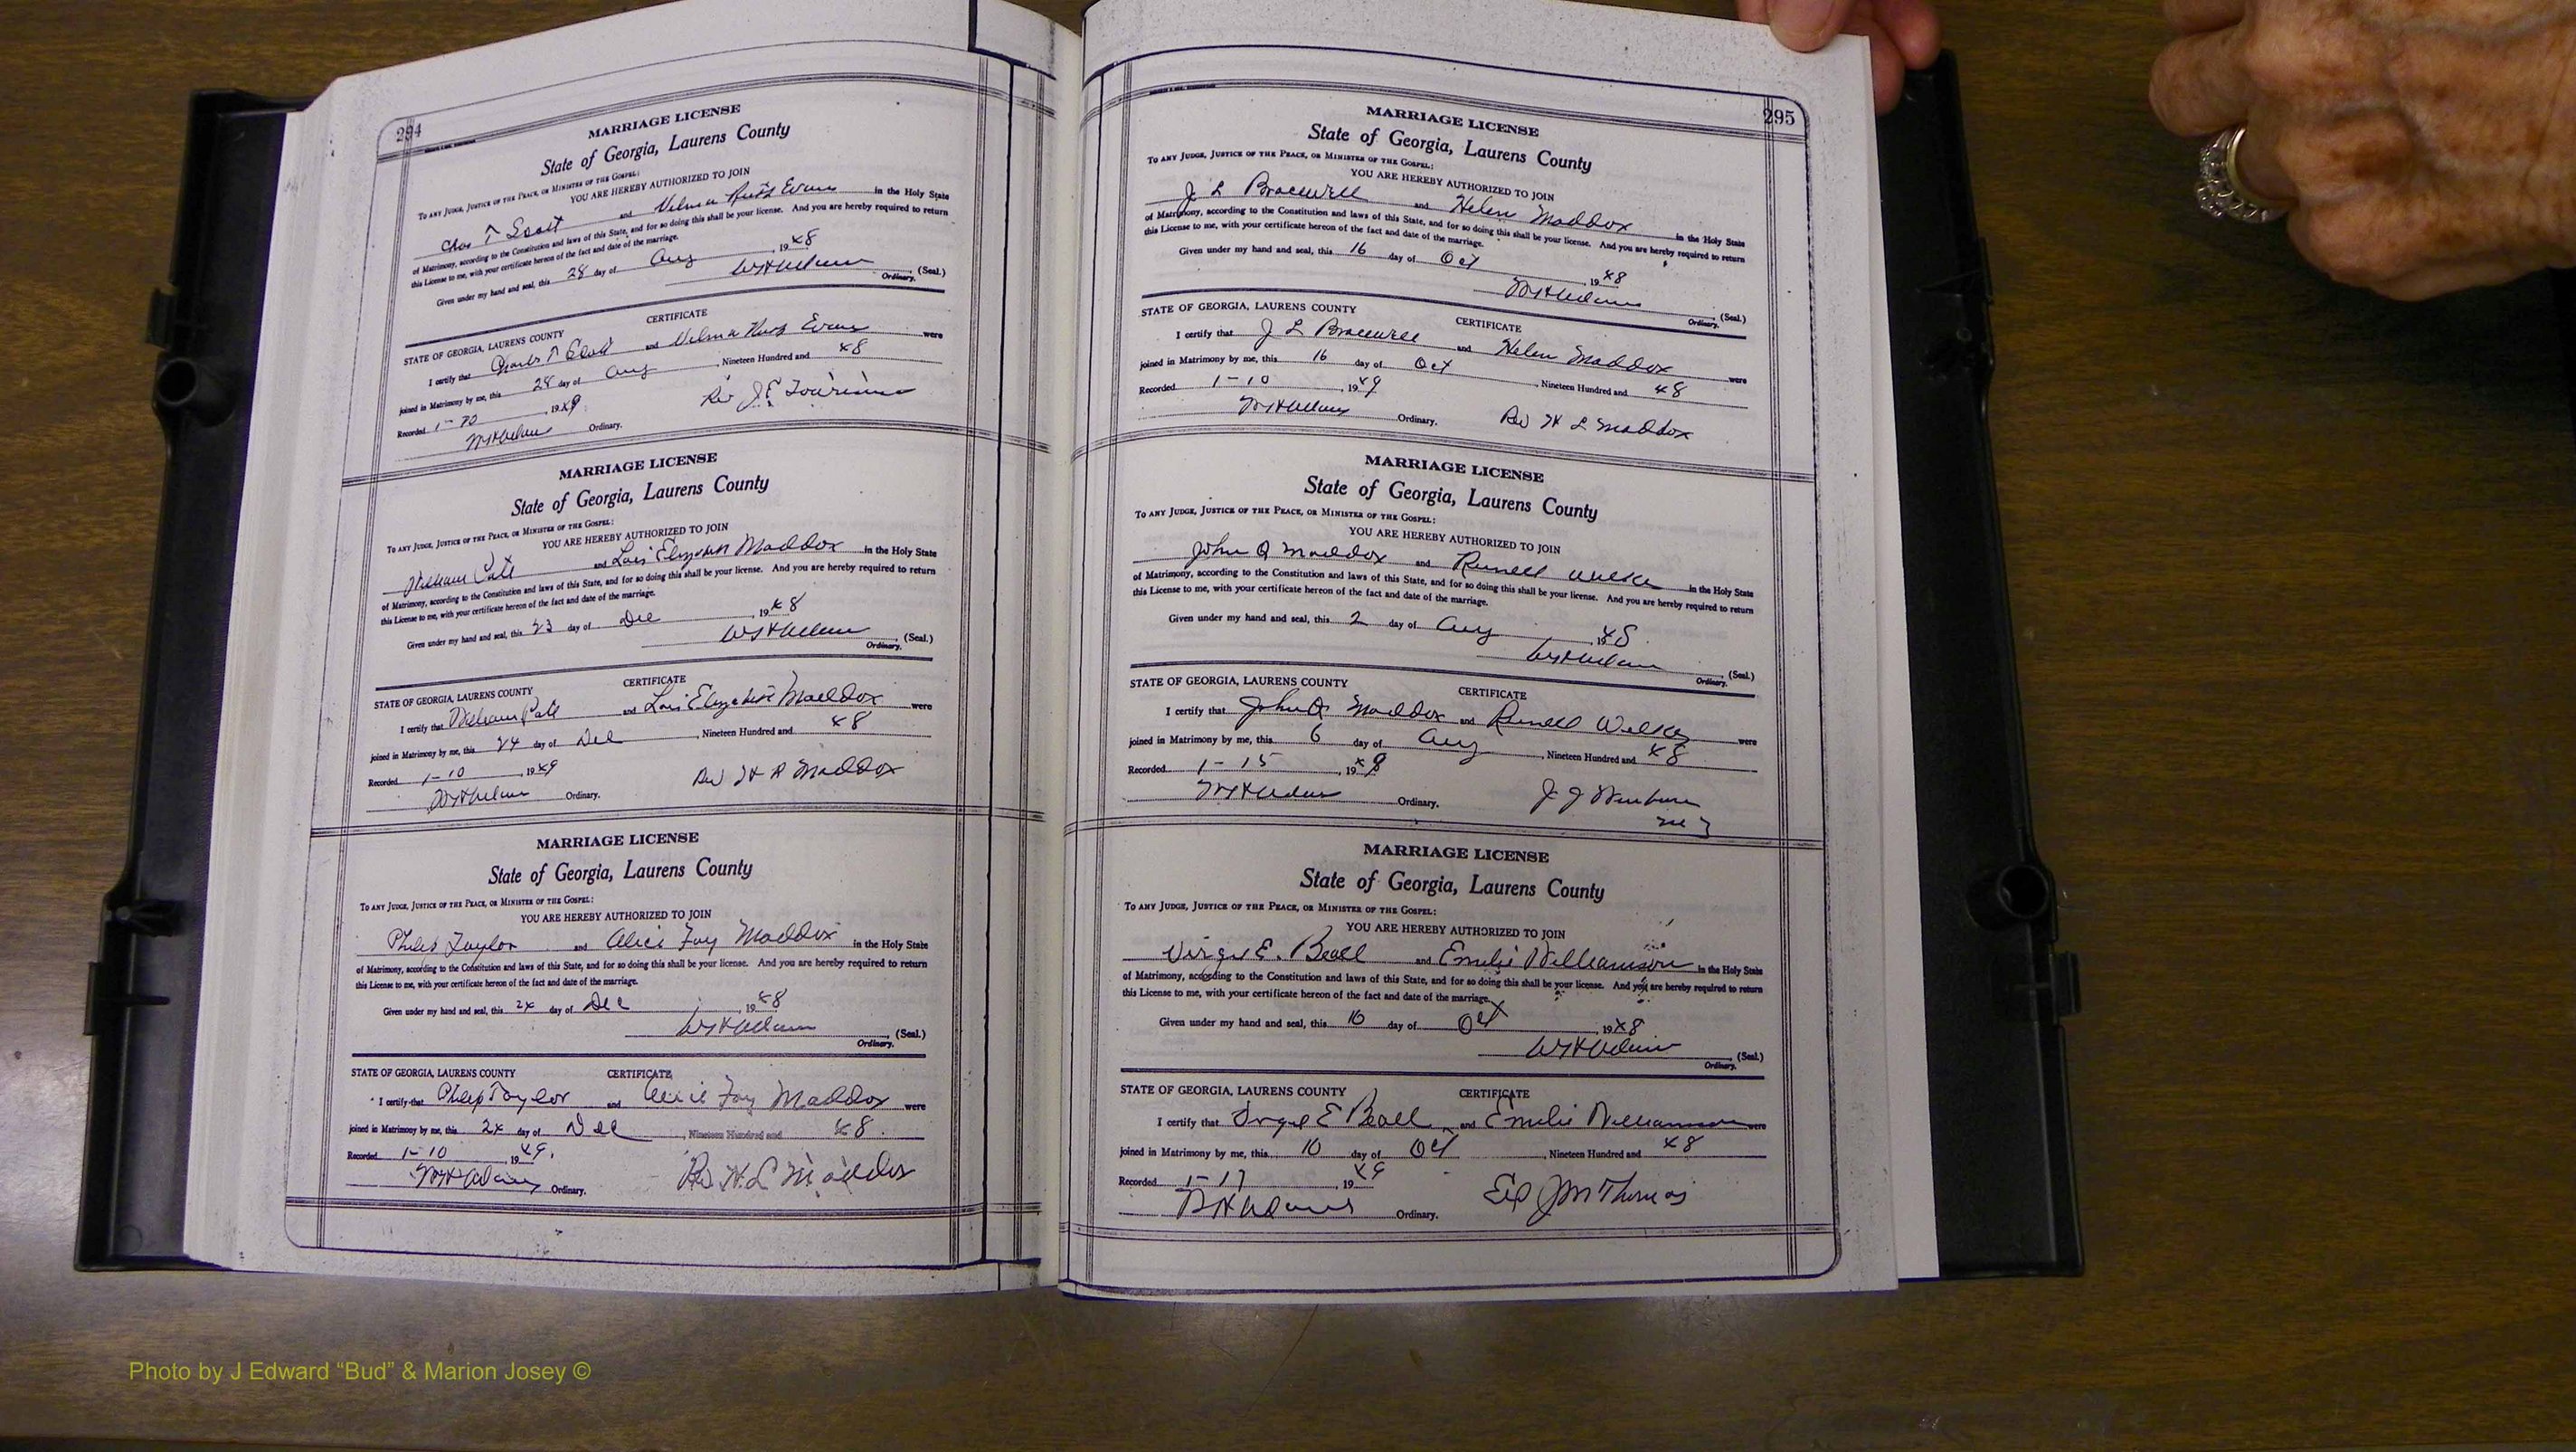 294
MARRIAGE LICENSE
State of Georgia, Laurens County
To any Judge, Justice of the Peace, or Minister of the Gospel:
YOU ARE HEREBY AUTHORIZED TO JOIN
Chas T Scott and Velma Ruth Evans in the Holy State
of Matrimony, according to the Constitution and laws of this State, and for so doing this shall be your license. And you are hereby required to return
this License to me, with your certificate hereon of the fact and date of the marriage.
Given under my hand and seal, this 28 day of Aug, 1948
(Seal.)
Ordinary.
STATE OF GEORGIA, LAURENS COUNTY CERTIFICATE
I certify that Charles T Scott and Velma Ruth Evans were
joined in Matrimony by me, this 28 day of Aug, Nineteen Hundred and 48
Recorded 1-10, 1949 Rev J.E.
Ordinary.
MARRIAGE LICENSE
State of Georgia, Laurens County
To any Judge, Justice of the Peace, or Minister of the Gospel:
YOU ARE HEREBY AUTHORIZED TO JOIN
William Pate and Lois Elizabeth Maddox in the Holy State
of Matrimony, according to the Constitution and laws of this State, and for so doing this shall be your license. And you are hereby required to return
this License to me, with your certificate hereon of the fact and date of the marriage.
Given under my hand and seal, this 23 day of Dec, 1948
(Seal.)
Ordinary.
STATE OF GEORGIA, LAURENS COUNTY CERTIFICATE
I certify that William Pate and Lois Elizabeth Maddox were
joined in Matrimony by me, this 24 day of Dec, Nineteen Hundred and 48
Recorded 1-10, 1949 Rev Maddox
Ordinary.
MARRIAGE LICENSE
State of Georgia, Laurens County
To any Judge, Justice of the Peace, or Minister of the Gospel:
YOU ARE HEREBY AUTHORIZED TO JOIN
Philip Taylor and Alice Fay Maddox in the Holy State
of Matrimony, according to the Constitution and laws of this State, and for so doing this shall be your license. And you are hereby required to return
this License to me, with your certificate hereon of the fact and date of the marriage.
Given under my hand and seal, this 24 day of Dec, 1948
(Seal.)
Ordinary.
STATE OF GEORGIA, LAURENS COUNTY CERTIFICATE
I certify that Philip Taylor and Alice Fay Maddox were
joined in Matrimony by me, this 24 day of Dec, Nineteen Hundred and 48
Recorded 1-10, 1949. Rev H. L Maddox
Ordinary.
295
MARRIAGE LICENSE
State of Georgia, Laurens County
To any Judge, Justice of the Peace, or Minister of the Gospel:
YOU ARE HEREBY AUTHORIZED TO JOIN
J L Bracewell and Helen Maddox in the Holy State
of Matrimony, according to the Constitution and laws of this State, and for so doing this shall be your license. And you are hereby required to return
this License to me, with your certificate hereon of the fact and date of the marriage.
Given under my hand and seal, this 16 day of Oct, 1948
(Seal.)
Ordinary.
STATE OF GEORGIA, LAURENS COUNTY CERTIFICATE
I certify that J L Bracewell and Helen Maddox were
joined in Matrimony by me, this 16 day of Oct, Nineteen Hundred and 48
Recorded 1-10, 1949
Ordinary. Rev H L Maddox
MARRIAGE LICENSE
State of Georgia, Laurens County
To any Judge, Justice of the Peace, or Minister of the Gospel:
YOU ARE HEREBY AUTHORIZED TO JOIN
John Q Maddox and in the Holy State
of Matrimony, according to the Constitution and laws of this State, and for so doing this shall be your license. And you are hereby required to return
this License to me, with your certificate hereon of the fact and date of the marriage.
Given under my hand and seal, this 2 day of Aug, 1948
(Seal.)
Ordinary.
STATE OF GEORGIA, LAURENS COUNTY CERTIFICATE
I certify that John Q Maddox and were
joined in Matrimony by me, this 6 day of Aug, Nineteen Hundred and 48
Recorded 1-15, 1949
Ordinary. J J
MARRIAGE LICENSE
State of Georgia, Laurens County
To any Judge, Justice of the Peace, or Minister of the Gospel:
YOU ARE HEREBY AUTHORIZED TO JOIN
E. Beall and Emilie Williamson in the Holy State
of Matrimony, according to the Constitution and laws of this State, and for so doing this shall be your license. And you are hereby required to return
this License to me, with your certificate hereon of the fact and date of the marriage.
Given under my hand and seal, this 10 day of Oct, 1948
(Seal.)
Ordinary.
STATE OF GEORGIA, LAURENS COUNTY CERTIFICATE
I certify that E Beall and Emilie Williamson were
joined in Matrimony by me, this 10 day of Oct, Nineteen Hundred and 48
Recorded 1-17, 1949
Ordinary. J M Thomas
Photo by J Edward “Bud” & Marion Josey ©